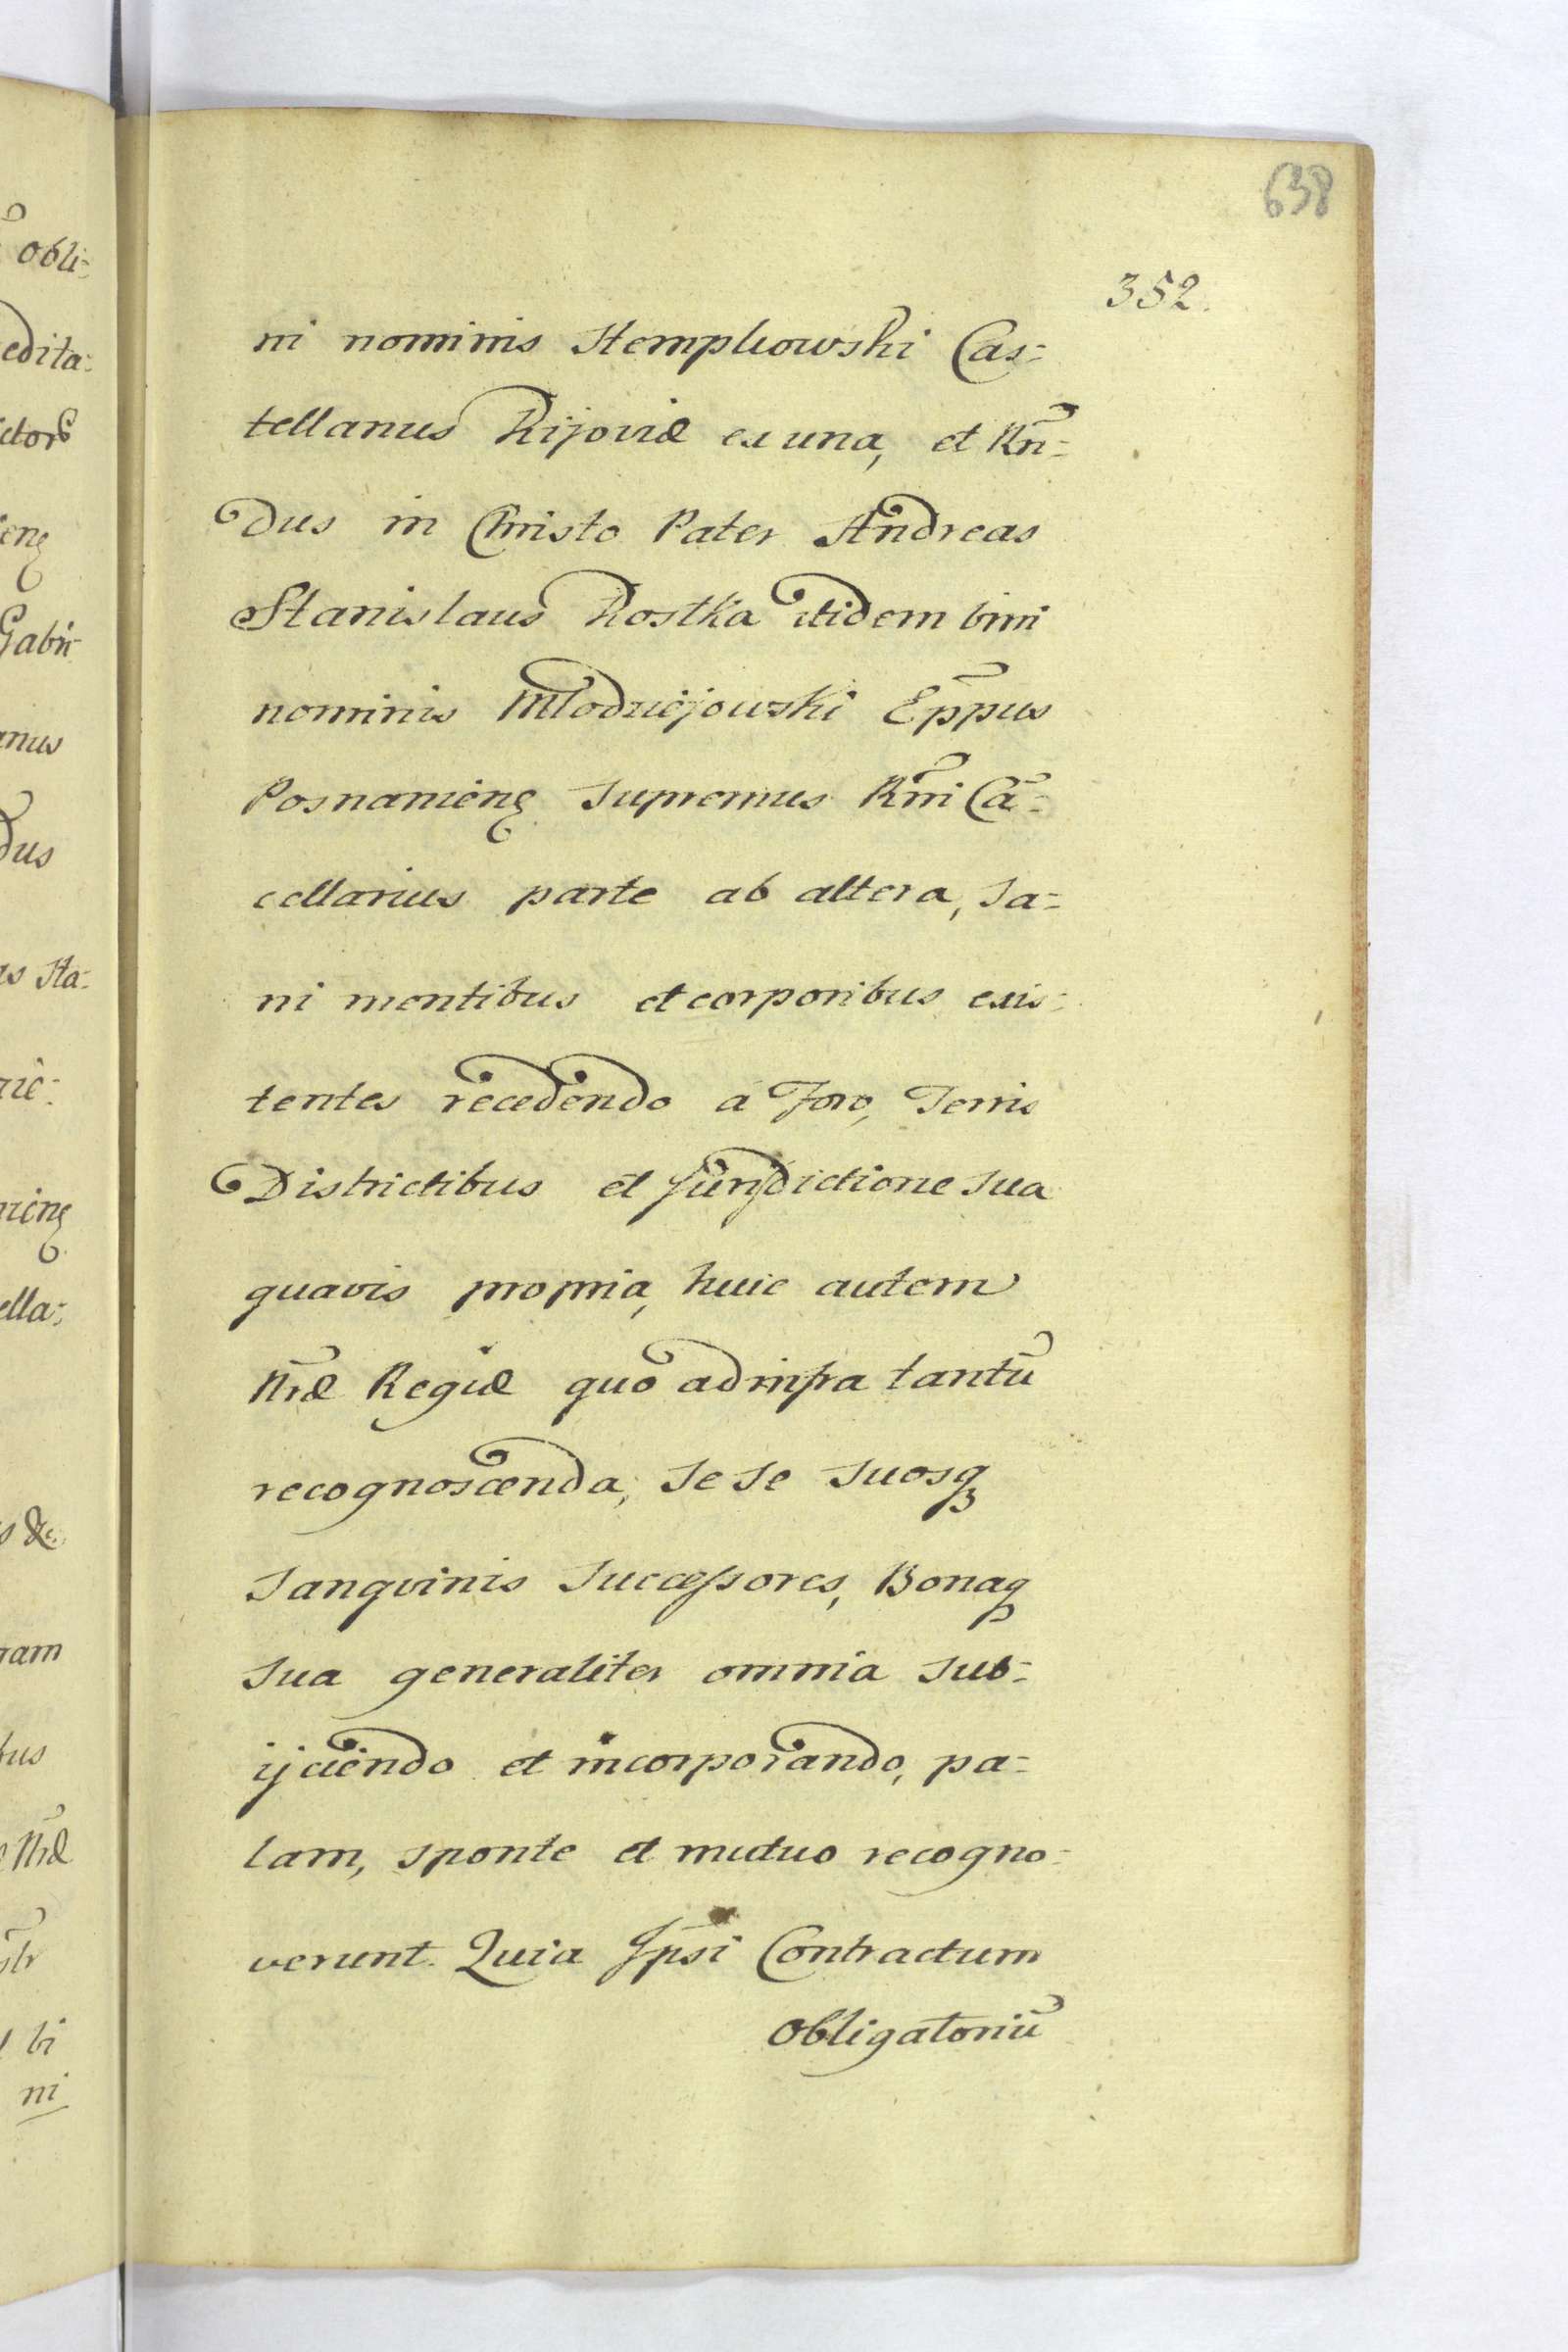 638
352.
ni nominis Stempkowski Cas=
tellanus Kijoviæ ex una, et Rn̄=
dus in Christo Pater Andreas
Stanislaus Kostka itidem bini
nominis Młodziejowski Ep̄pus
Posnanieng Supremus Rn̄i Cā=
cellarius parte ab altera, Sa=
ni mentibus et corporibus exis=
tentes recedendo a Foro, Terris
Districtibus et Jurisdictione Sua
quavis propria, huic autem
Nr̄æ Regiæ quo ad infra tantū
recognoscenda, Se Se Suosq
Sangvinis Successores, Bonaq
Sua generaliter omnia Sub=
ijciendo et incorporando, pa=
lam, sponte et mutuo recogno=
verunt. Quia Jpsi Contractum
Obligatoriū
obli=
edita=
ctors
ieng
Gabri
anus
dus
as Sta=
nieng
ella=
s &c.
ram
bus
Nr̄æ
bi
ni